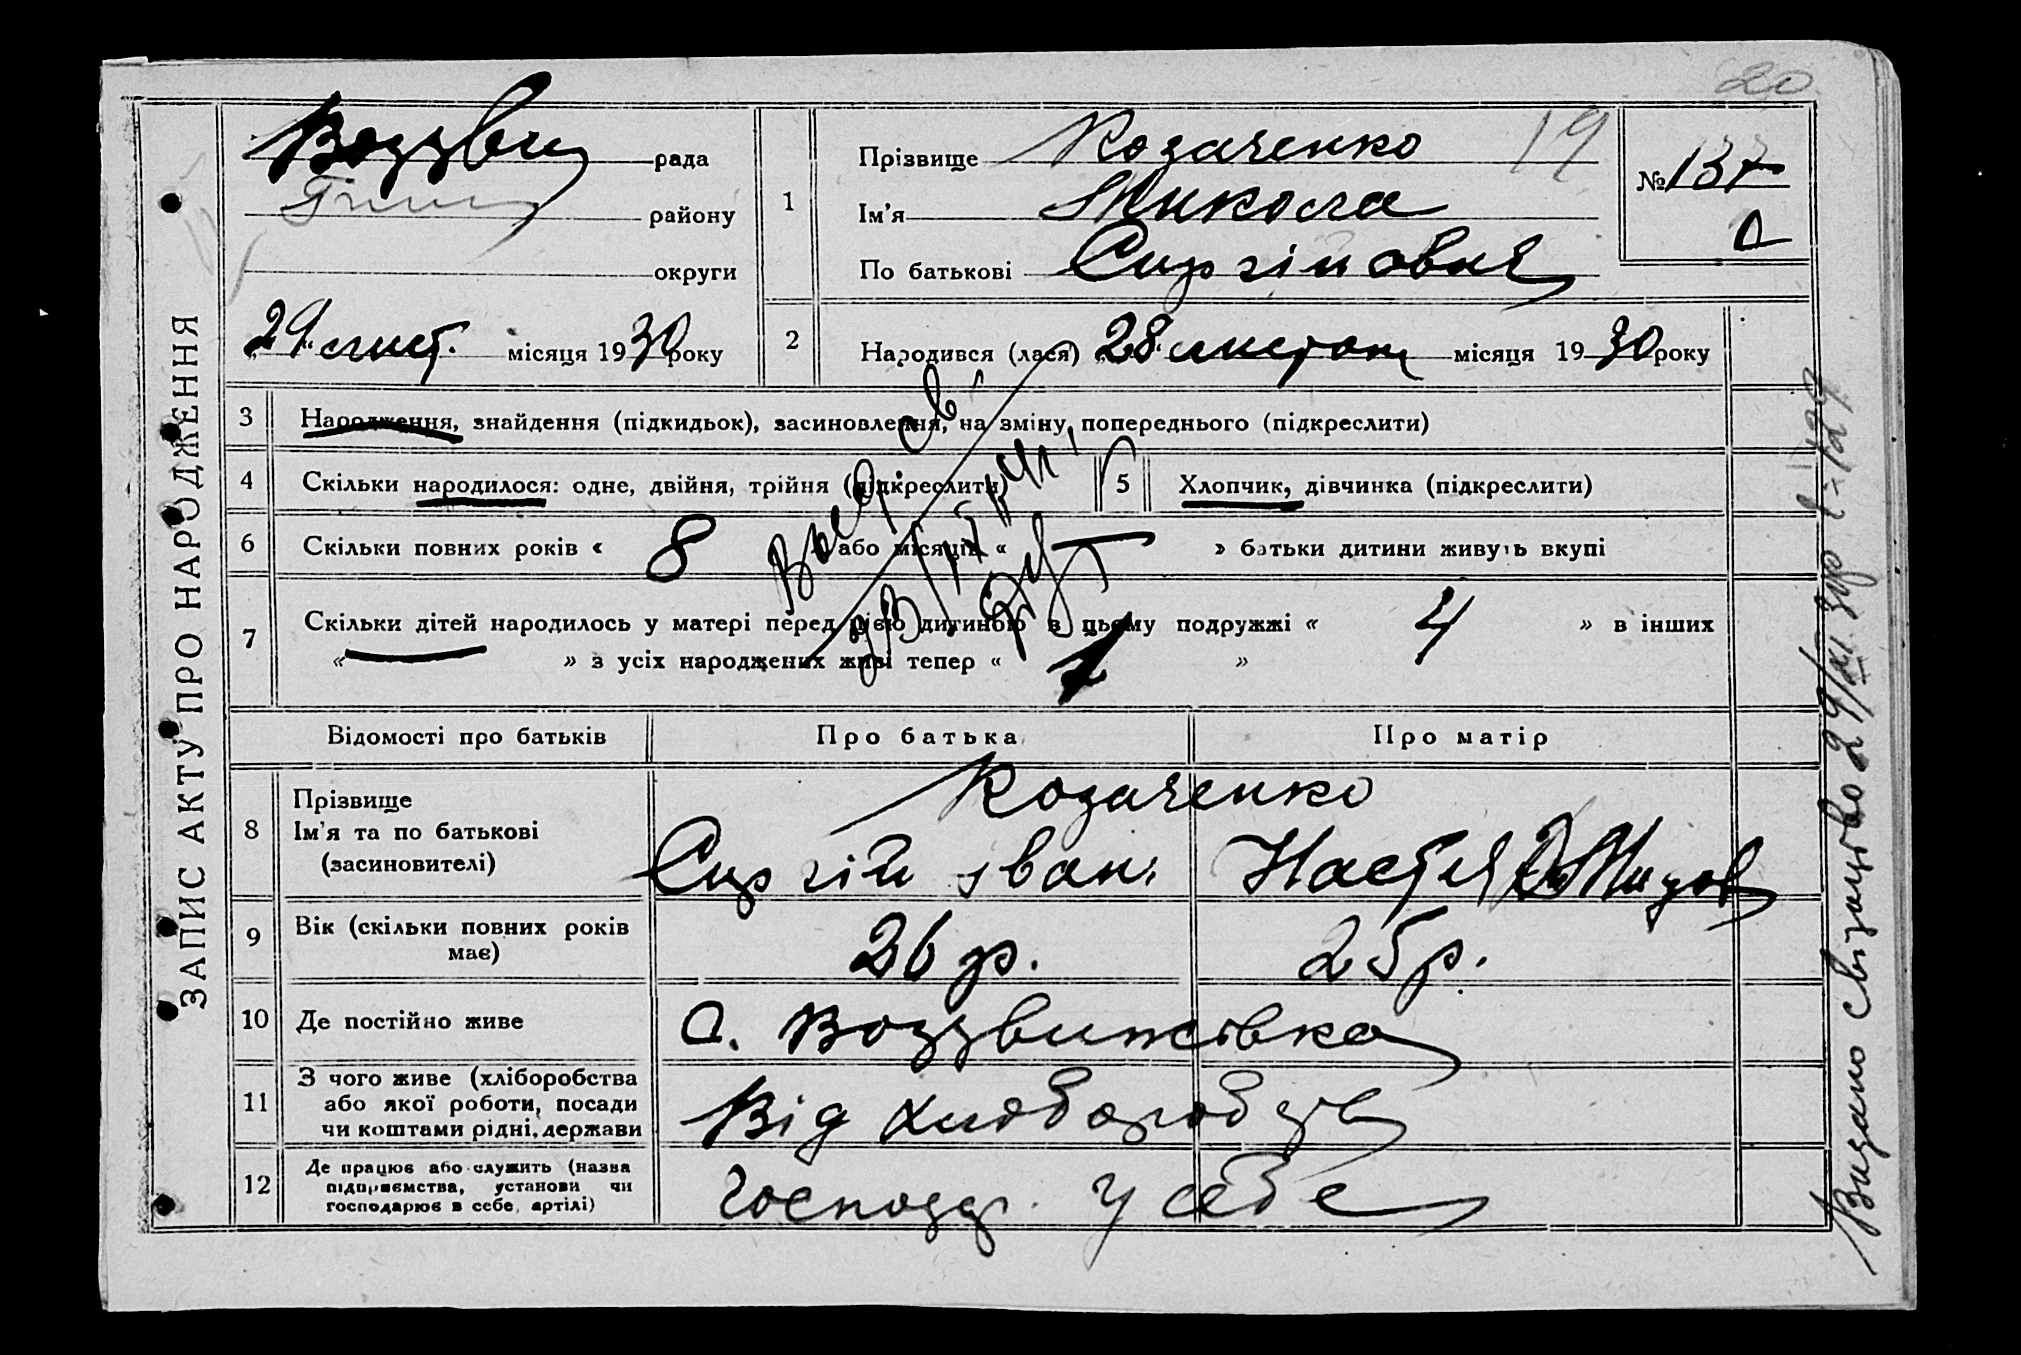 20
ЗАПИС АКТУ ПРО НАРОДЖЕННЯ
Воздви рада
району
округи
29 лист. місяця 1930 року
1
Прізвище Козаченко
19
Ім'я Микола
По батькові Сиргійович
№ 137
2
Народився (лася) „28“ листоп місяця 1930 року
3 Народження, знайдення (підкидьок), засиновлення, на зміну попереднього (підкреслити)
4 Скільки народилося: одне, двійня, трійня (підкреслити)
5 Хлопчик, дівчинка (підкреслити)
6 Скільки повних років « 8 або місяців « — » батьки дитини живуть вкупі
7 Скільки дітей народилось у матері перед цією дитиною в цьому подружжі « 4 » в інших
« — » з усіх народжених живі тепер « 1 »
Відомості про батьків Про батька Про матір
8 Прізвище
Ім'я та по батькові
(засиновителі)
Козаченко
Сиргій Іван. Настя
9 Вік (скільки повних років має) 26 р. 25 р.
10 Де постійно живе с. Воздвижівка
11 З чого живе (хліборобства
або якої роботи, посади
чи коштами рідні, держави
Від хлібороб
12 Де працює або служить (назва
підприємства, установи чи
господарює в себе, артілі)
господ. у себе
Видано свідоцтво 29/XI 30р